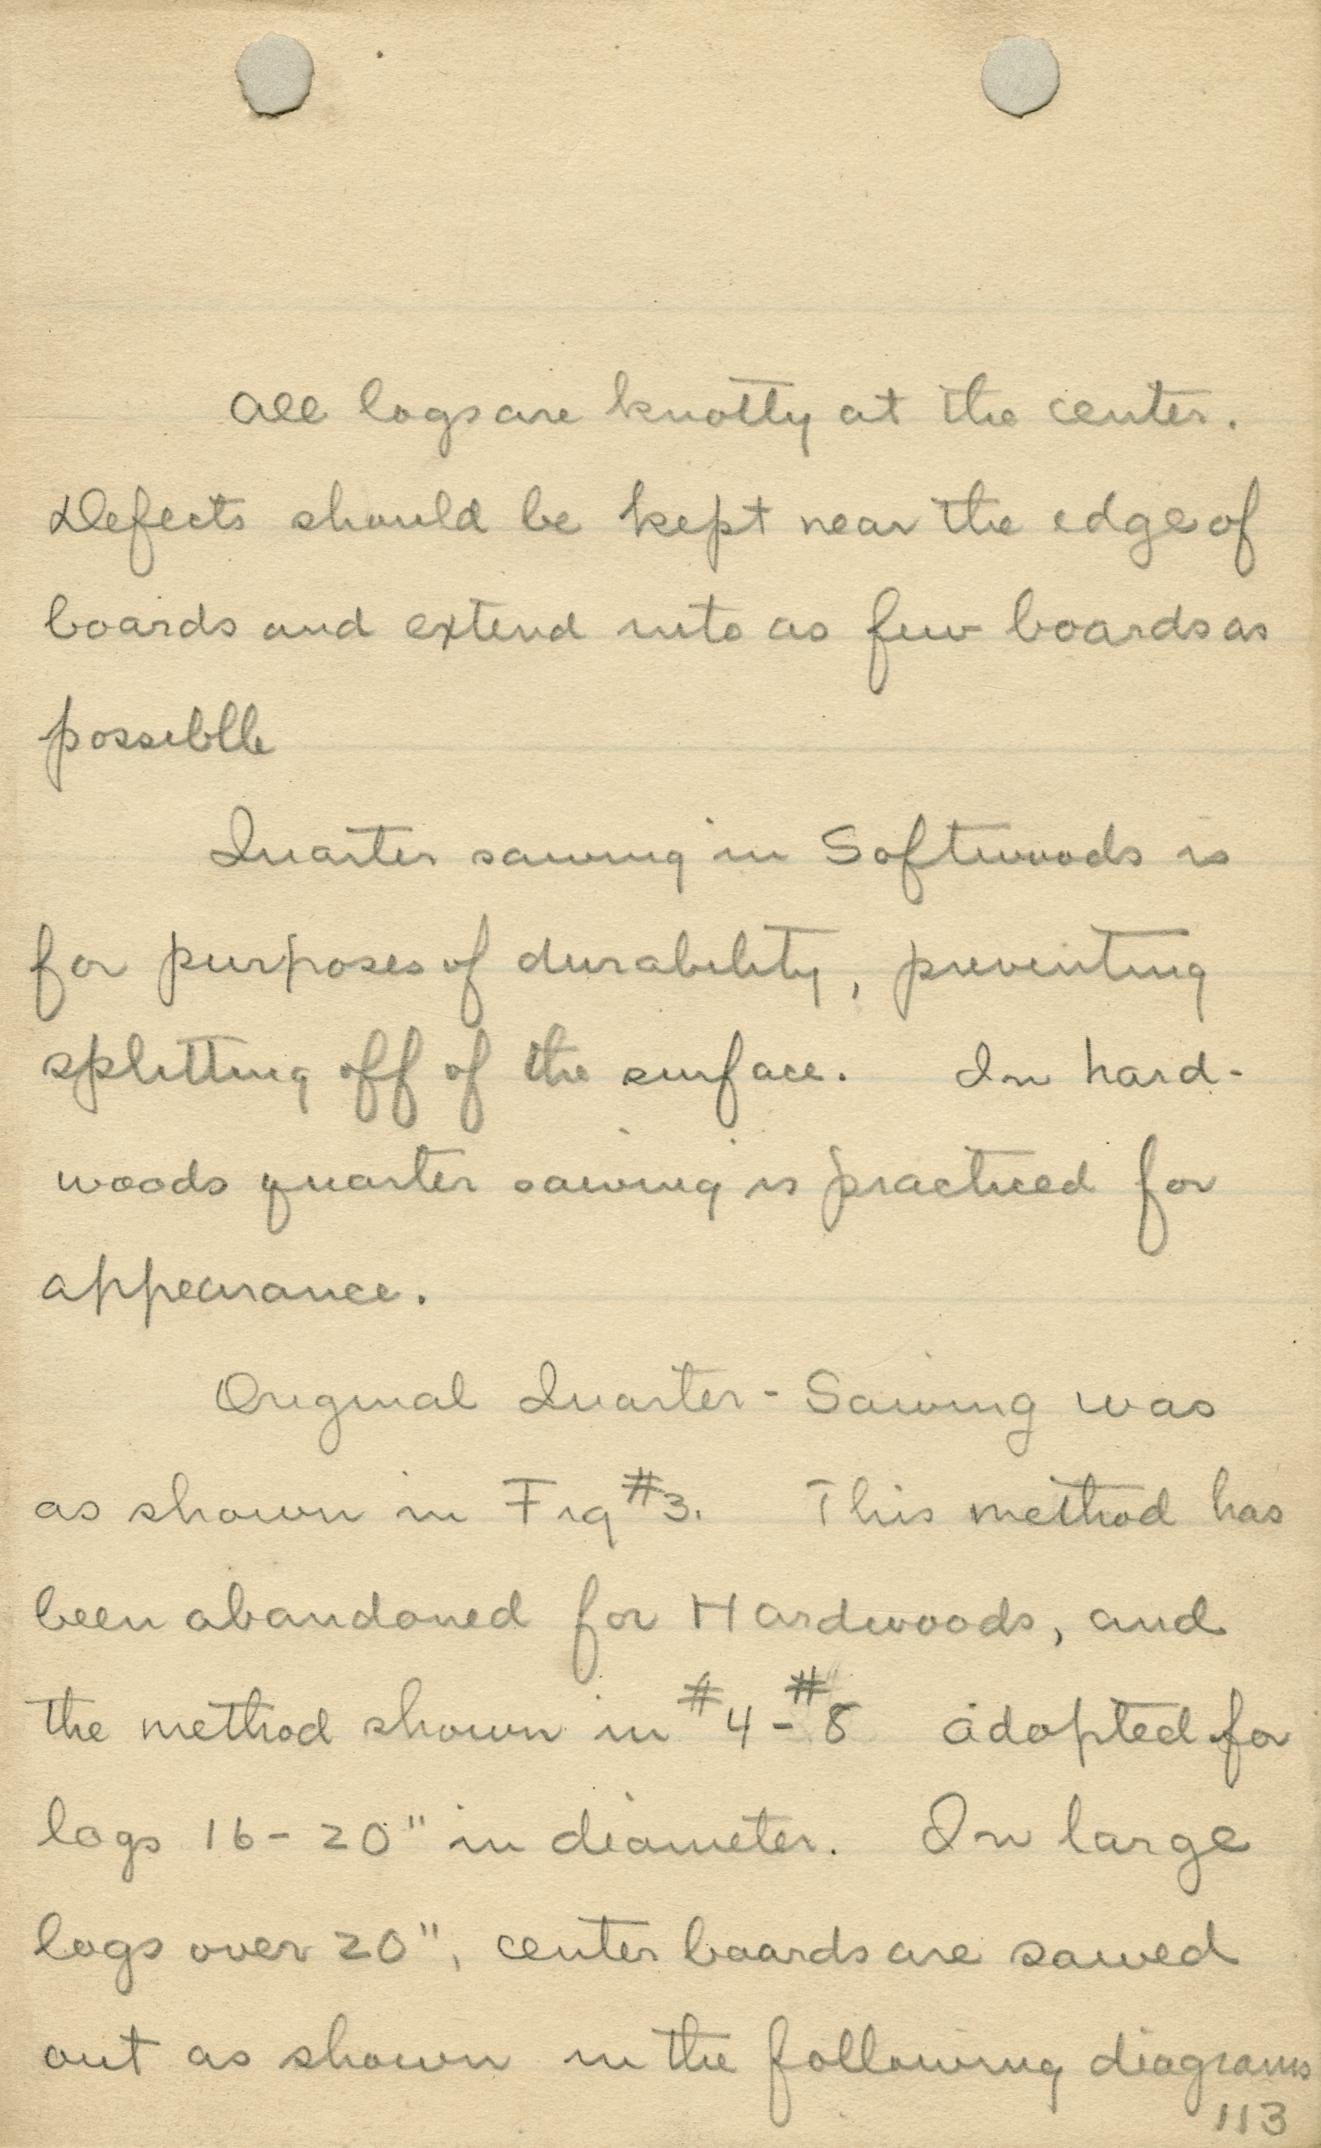 All logs are knotty at the center.
Defects should be kept near the edge of
boards and extend into as few boards as
possiblle
Quarter sawing in Softwoods is
for purposes of durability, preventing
splitting off of the surface. In hard-
woods quarter sawing is practiced for
appearance.
Original Quarter-Sawing was
as shown in Fig #3. This method has
been abandoned for Hardwoods, and
the method shown in #4-#8 adopted for
logs 16-20" in diameter. In large
logs over 20", center boards are sawed
out as shown in the following diagrams
113